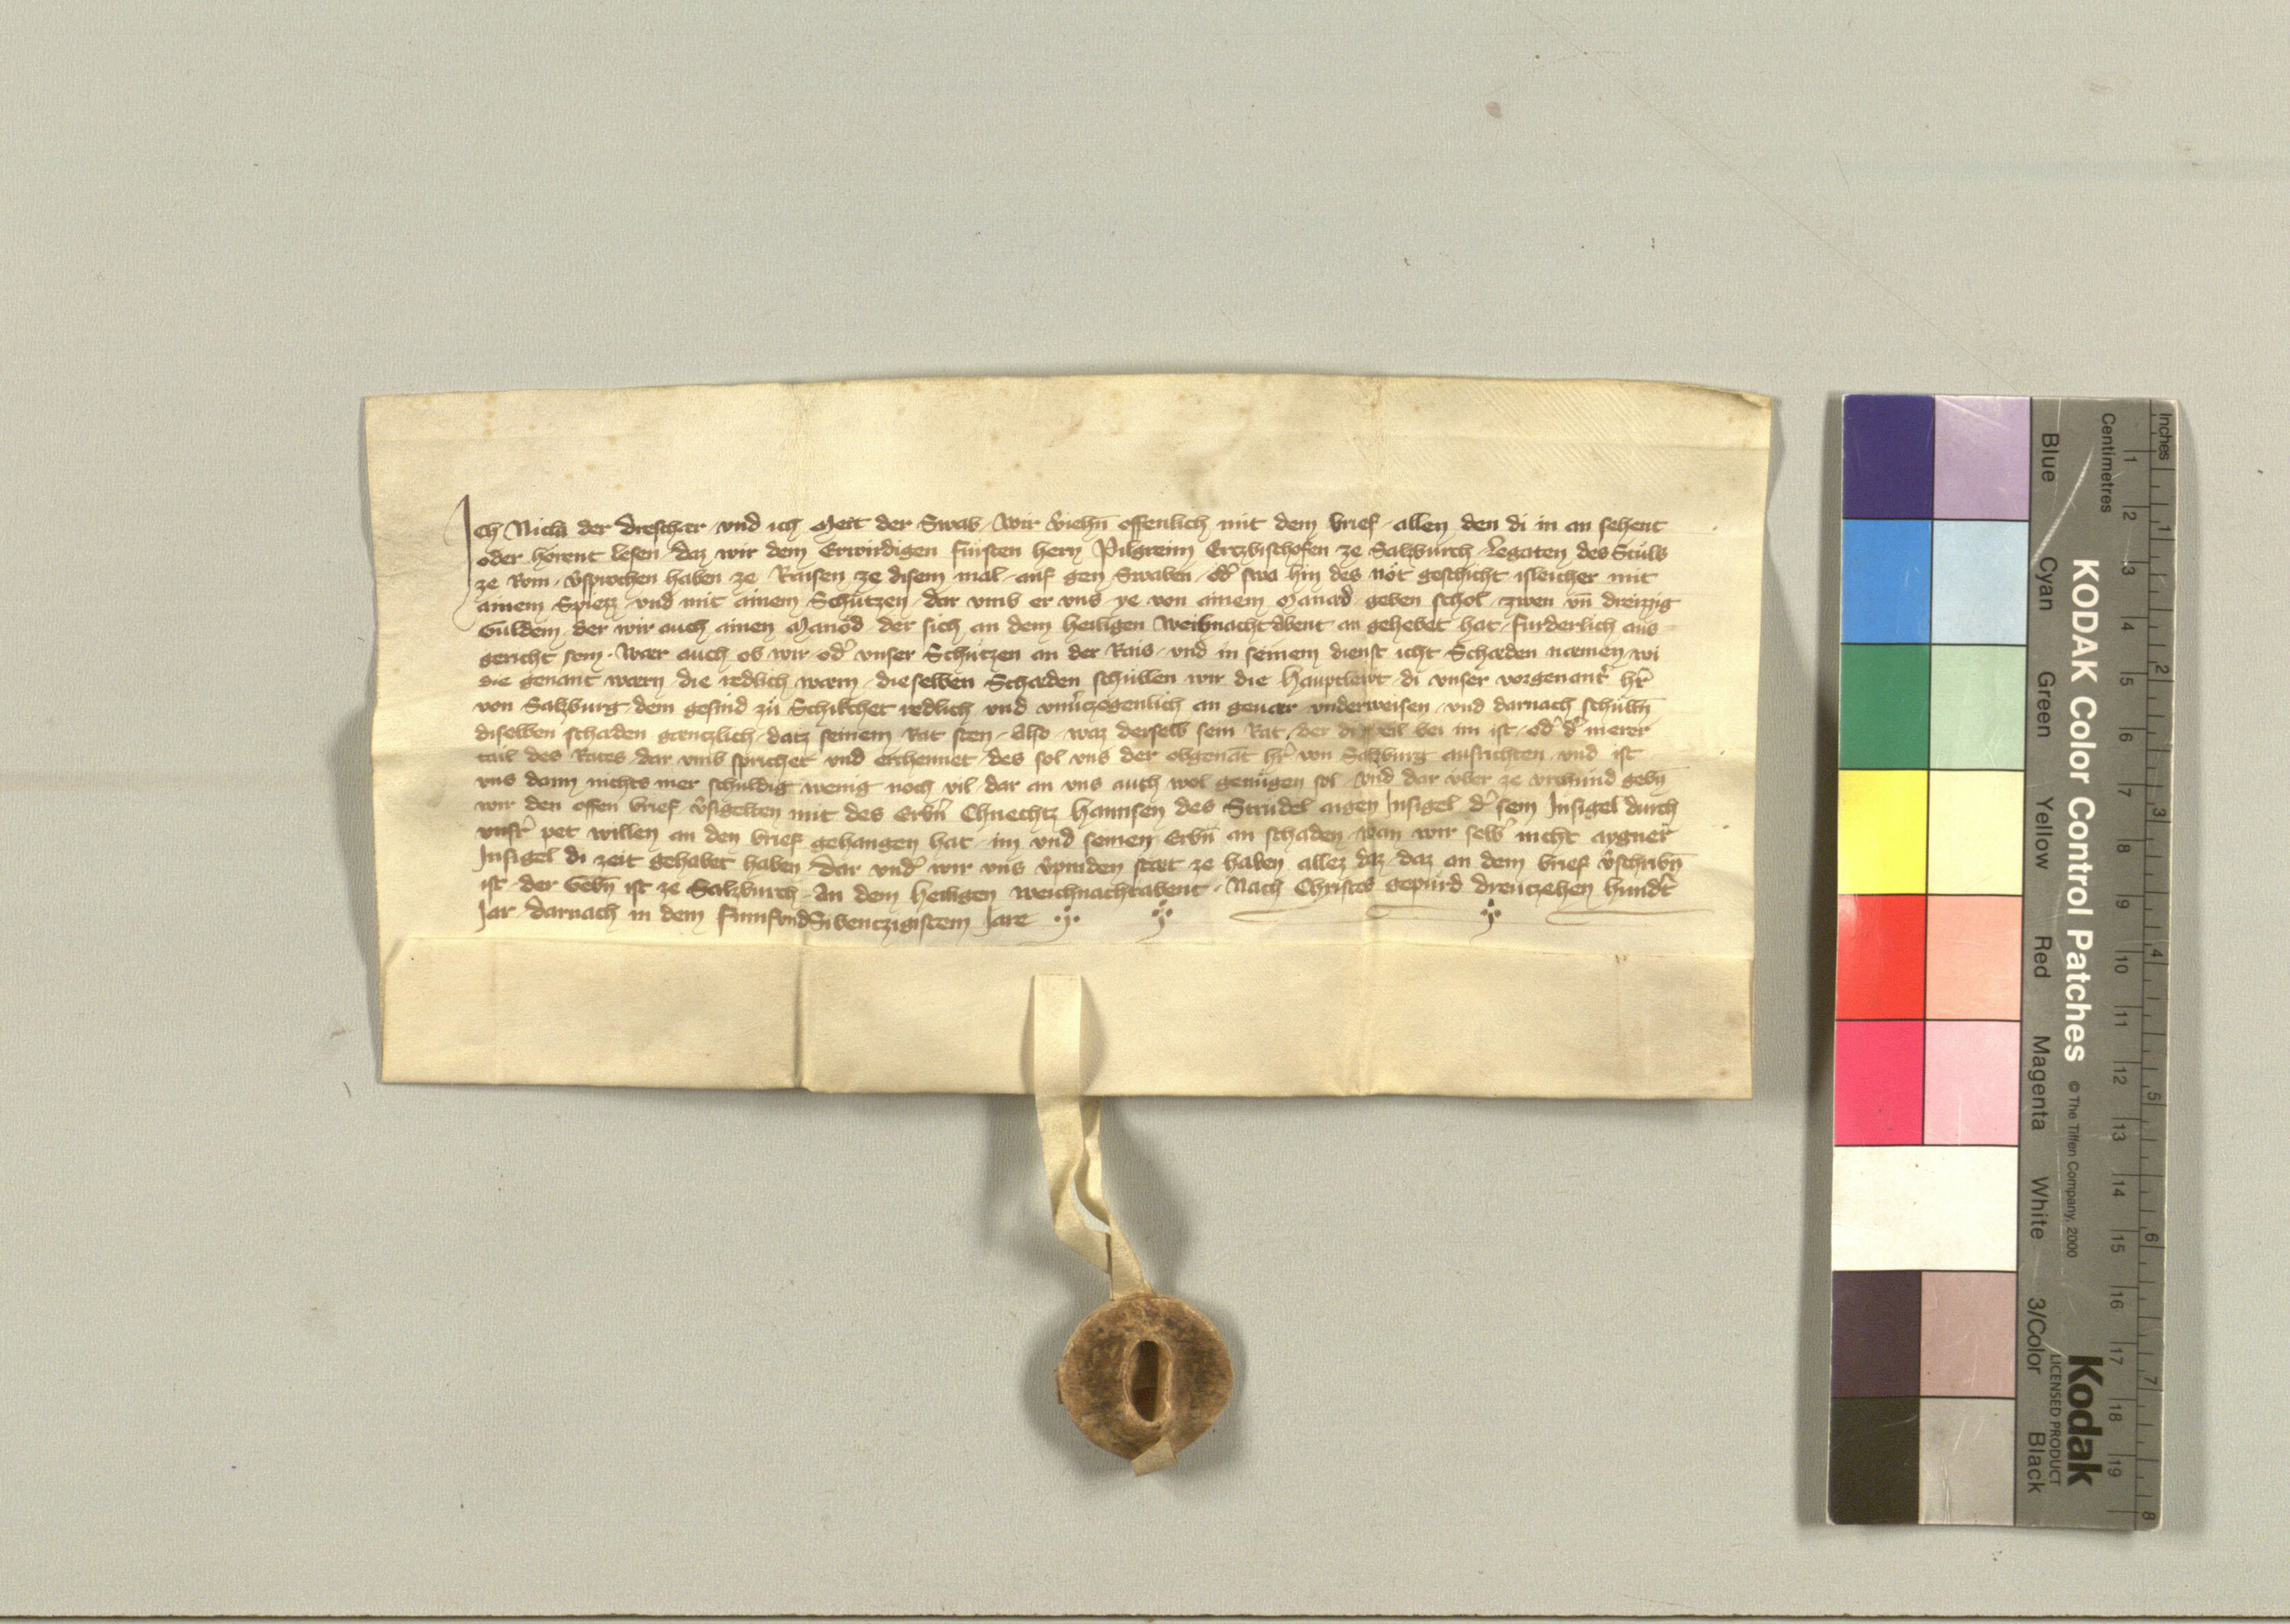 Ich Nicla der Dreschær und ich Meit der Swab Wir v̾iehn̄ offenlich mit dem brief allen den di in an sehent
oder hörent lesen daz wir dem Erwirdigen fürsten hern Pilgreim Ertzbischofen ze Saltzburch Legaten des Stůls
ze Rom v̾sprochen haben ze Raisen ze disem mal auf gen Swaben od̾ swa hin des nöt geschicht isleicher mit
ainem Spiezz und mit ainem Schützen dar umb er uns ye von ainem Manad geben schol zwen un̄ dreizzig
Guldein der wir auch ainen Manöd der sich an dem heiligen Weihnacht Abent an gehebet hat furderlich aus
gericht sein Wær auch ob wir od̾ unser Schützen an der Rais und in seinem dienst icht Schæden næmen wi
die genant wærn die redlich wærn dieselben Schæden schüllen wir die Hauptlewt di unser vorgenant̾ hr̄
von Saltzburg dem gesind zů Schikchet redlich und unv̾czogenlich an gevær underweisen und darnach schülln̄
diselben schæden gæntzlich datz seinem Rat sten Also waz derselb sein Rat der di weil bei im ist od̾ d̾ merer
tail des Rates dar umb sprichet und erchennet des sol uns der obgenāt hr̄ von Saltzburg ausrichten und ist
uns dann nichts mer schuldig wenig noch vil dar an uns auch wol genügen sol Und dar über ze urchund gebn̄
wir den offen brief v̾sigelten mit des Erbn̄ Chnechtz Hannsen des Strudel aigen Insigel d̾ sein Insigel durch
unsr̾ pet willen an den brief gehangen hat im und seinen Erbn̄ an schaden wan wir selb̾ nicht aygner
Insigel di zeit gehabet haben Dar und̾ wir uns v̾pinden stæt ze haben allez daz daz an dem brief v̾schribn̄
ist der Gebn̄ ist ze Saltzburch An dem heiligen weichnachtabent Nach Christes gepürd Dreutzehen hundr̾t
Jar darnach in dem FunfundSibentzigistem Jare
KODAK Color Control Patches
© The Tiffen Company, 2000
Kodak
LICENSED PRODUCT
Inches
Centimetres
Blue
Cyan
Green
Yellow
Red
Magenta
White
3/Color
Black
1 2 3 4 5 6 7 8
1 2 3 4 5 6 7 8 9 10 11 12 13 14 15 16 17 18 19